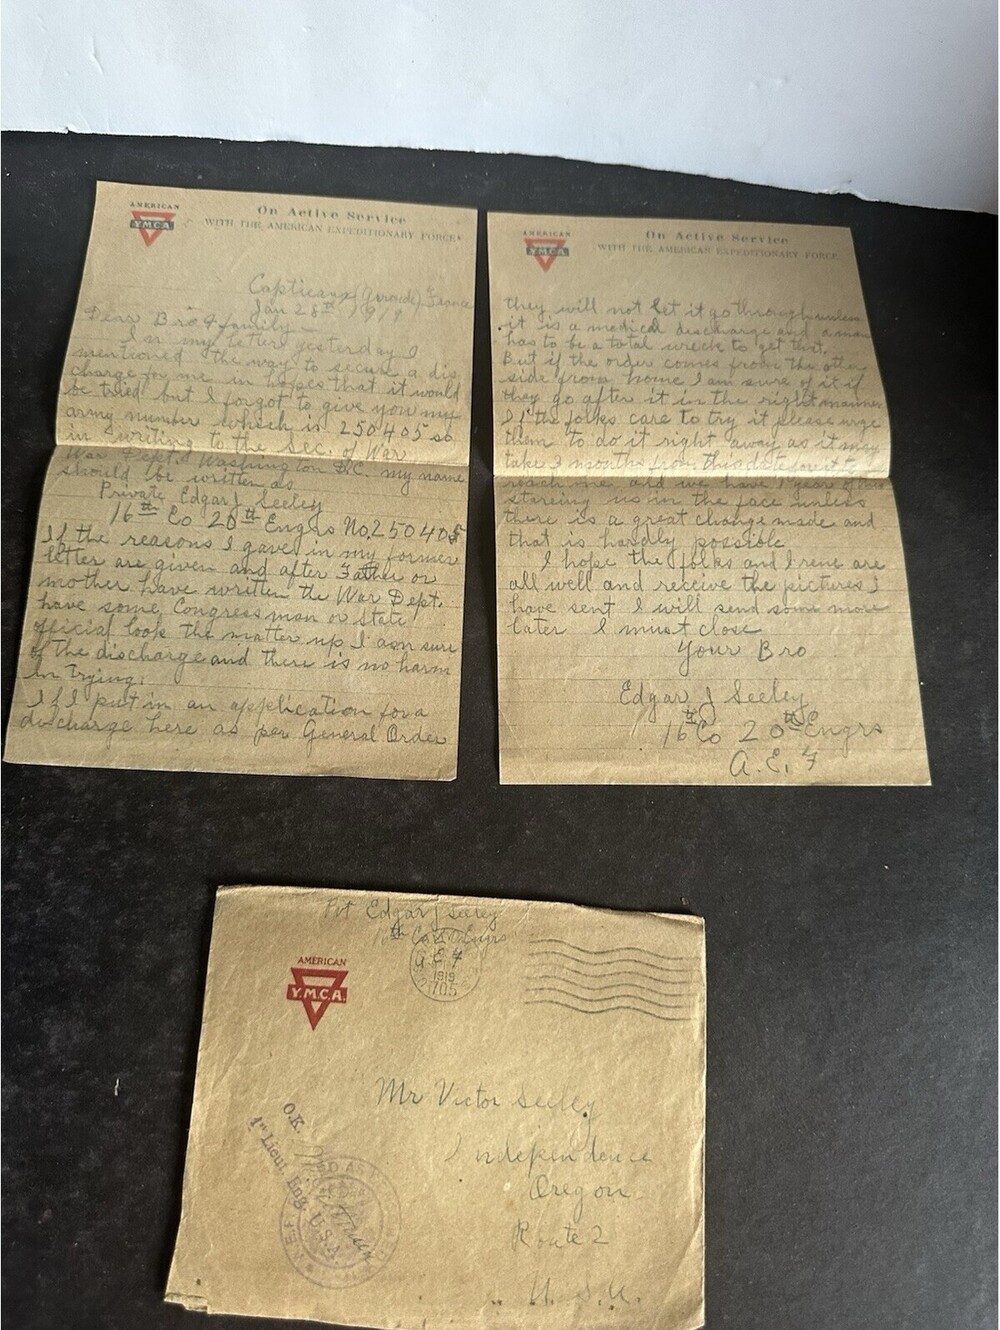 AMERICAN
Y.M.C.A.
On Active Service
WITH THE AMERICAN EXPEDITIONARY FORCES
Captieaux (Gironde) France
Jan 28th 1918
Dear Bro & family –
In my letter yesterday I
mentioned the way to secure a dis
charge for me in hopes that it would
be tried but I forgot to give you my
army number which is 250405 so
in writing to the Sec. of War
War Dept. Washington D.C. my name
should be written as
Private Edgar J Seeley
16th Co 20th Engrs No, 250405
If the reasons I gave in my former
letter are given and after Father or
mother have written the War Dept.
have some Congress man or State
official look the matter up I am sure
of the discharge and there is no harm
in trying.
If I put in an application for a
discharge here as per General Order
AMERICAN
Y.M.C.A.
On Active Service
WITH THE AMERICAN EXPEDITIONARY FORCE
they will not let it go through unless
it is a medical discharge and a man
has to be a total wreck to get that.
But if the order comes from the other
side from home I am sure of it if
they go after it in the right manner
If the folks care to try it please urge
them to do it right away as it may
take 3 months from this date for it to
reach me and we have 1 year of
stareing us in the face unless
there is a great change made and
that is hardly possible
I hope the folks and Irene are
all well and receive the pictures I
have sent I will send some more
later I must close
Your Bro
Edgar J Seeley
16th Co 20th Engrs
A.E.F
Pvt Edgar J Seeley
16th Co 20th Engrs
A E F
1919
705
AMERICAN
Y.M.C.A.
Mr Victor Seeley
Independence
Oregon
Route 2
U.S.A.
O.K.
1st Lieut. Eng. U.S.A.